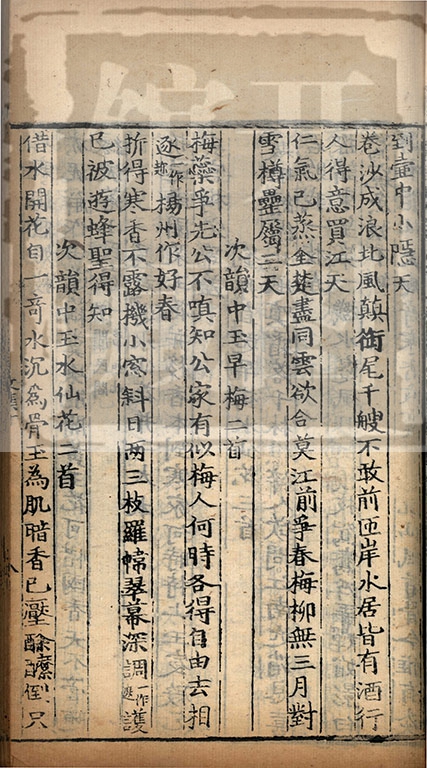 到壺中小隱天
卷沙成浪北風顛衘尾千艘不敢前匝岸水居皆有酒行
人得意買江天
仁氣已蒸全楚盡同雲欲合莫江前爭春梅柳無三月對
雪樽罍屬二天
次韻中玉早梅二首
梅蘂爭先公不嗔知公家有似梅人何時各得自由去相
逐一作趂楊州作好春
折得寒香不露機小窓斜日两三枝羅幃翠幕深調一作遮護
已被游蜂聖得知
次韻中玉水仙花二首
借水開花自一竒水沉為骨玉為肌暗香已壓酴醿倒只